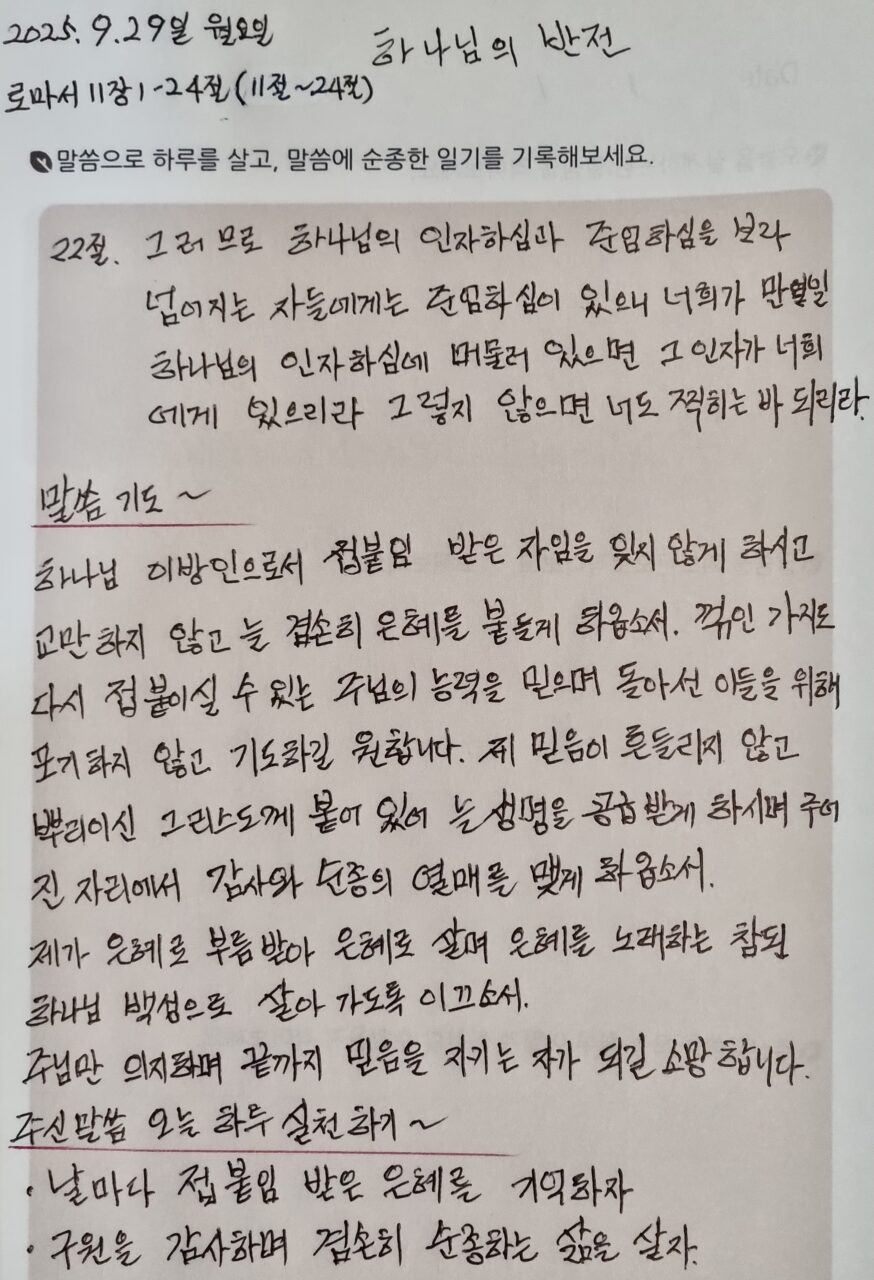 2025. 9. 29일 월요일
하나님의 반전
로마서 11장 1-24절(11절~24절)
말씀으로 하루를 살고, 말씀에 순종한 일기를 기록해보세요.
22절. 그러므로 하나님의 인자하심과 준엄하심을 보라
넘어지는 자들에게는 준엄하심이 있으니 너희가 만일
하나님의 인자하심에 머물러 있으면 그 인자가 너희
에게 있으리라 그렇지 않으면 너도 찍히는 바 되리라.
말씀 기도~
하나님 이방인으로서 접붙임 받은 자임을 잊지 않게 하시고
교만하지 않고 늘 겸손히 은혜를 붙들게 하옵소서. 꺾인 가지도
다시 접붙이실 수 있는 주님의 능력을 믿으며 돌아선 이들을 위해
포기하지 않고 기도하길 원합니다. 제 믿음이 흔들리지 않고
뿌리이신 그리스도께 붙어 있어 늘 생명을 공급받게 하시며 주어
진 자리에서 감사와 순종의 열매를 맺게 하옵소서.
제가 은혜로 부름받아 은혜로 살며 은혜를 노래하는 참된
하나님 백성으로 살아 가도록 이끄소서.
주님만 의지하며 끝까지 믿음을 지키는 자가 되길 소망합니다.
주신말씀 오늘 하루 실천하기~
• 날마다 접붙임 받은 은혜를 기억하자
• 구원을 감사하며 겸손히 순종하는 삶을 살자.